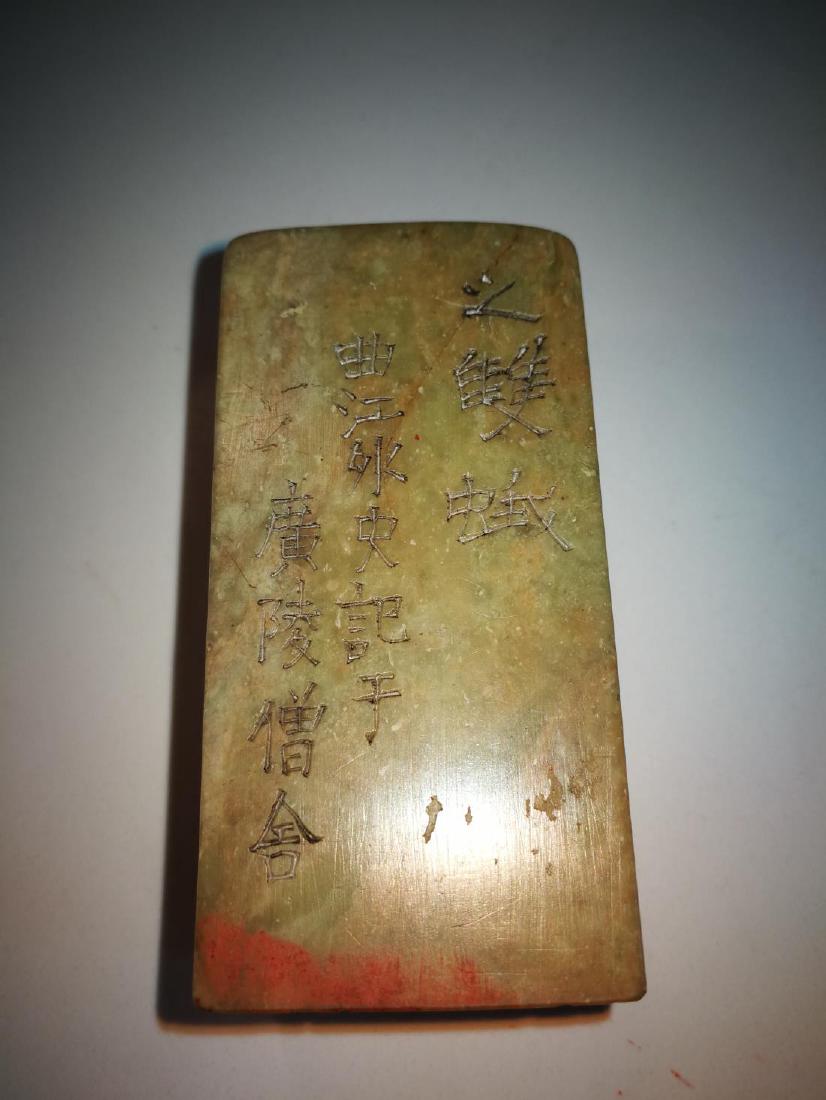 之雙蛾
曲江外史記于
廣陵僧舍